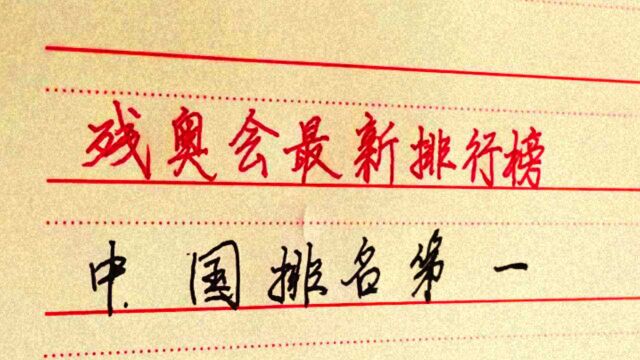 残奥会最新排行榜
中国排名第一